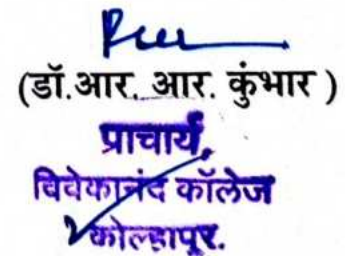 (डॉ.आर. आर. कुंभार )
प्राचार्य,
विवेकानंद कॉलेज
कोल्हापूर.